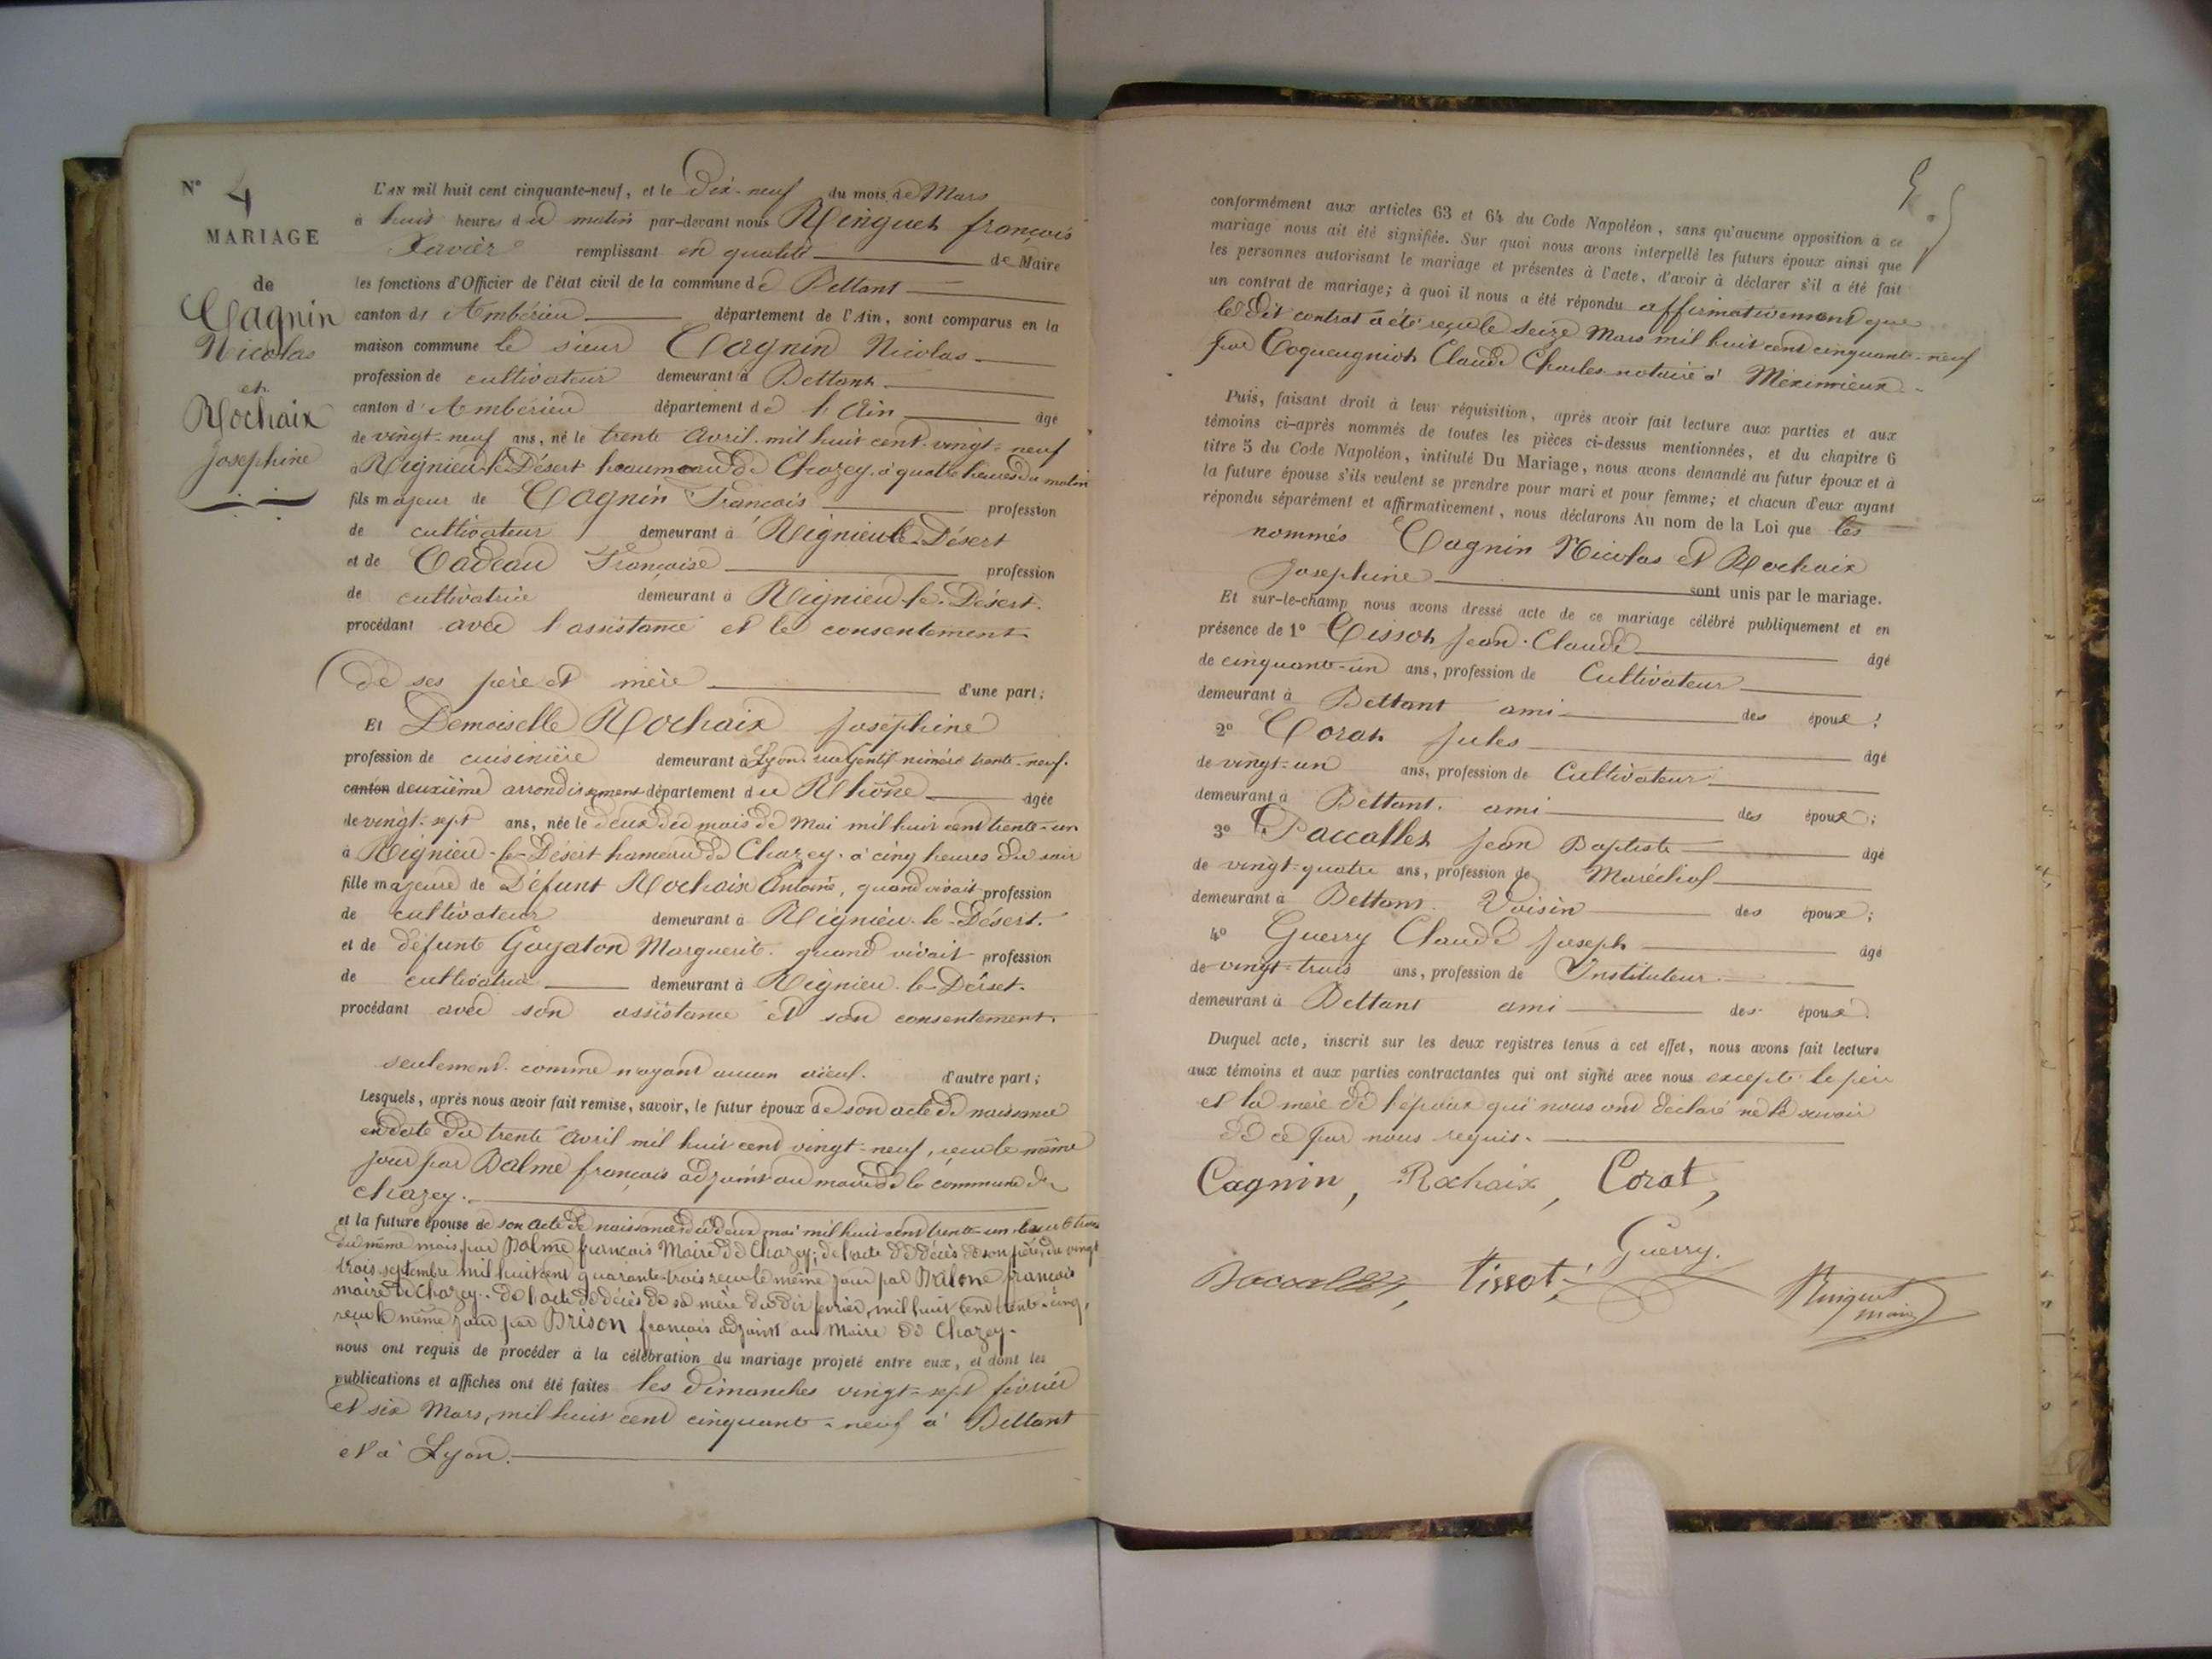 N° 4
MARIAGE
de
Cagnin
Nicolas
et
Rochaix
Josephine
L'AN mil huit cent cinquante-neuf, et le Dix-neuf du mois de Mars
à huit heures du matin par-devant nous Ringuet françois
Xavier remplissant en qualité de Maire
les fonctions d'Officier de l'état civil de la commune de Bettant
canton d'Ambérieu département de l'Ain, sont comparus en la
maison commune le sieur Cagnin Nicolas
profession de cultivateur demeurant à Bettant
canton d'Ambérieu département de l'Ain âgé
de vingt-neuf ans, né le trente Avril mil huit cent vingt-neuf
à Rignieu-le-Désert hameau de Chazey, à quatre heures du matin
fils majeur de Cagnin François profession
de cultivateur demeurant à Rignieu-le-Désert
et de Cadeau Françoise profession
de cultivatrice demeurant à Rignieu-le-Désert.
procédant avec l'assistance et le consentement
de ses père et mère d'une part;
Et Demoiselle Rochaix Joséphine
profession de cuisinière demeurant à Lyon. rue Gentil numéro trente-neuf.
canton deuxième arrondissement département du Rhône âgée
de vingt-sept ans, née le deux du mois de Mai mil huit cent trente-un
à Rignieu-le-Désert hameau de Chazey. à cinq heures du soir
fille majeure de Défunt Rochaix Antoine, quand vivait profession
de cultivateur demeurant à Rignieu-le-Désert.
et de défunte Goyaton Marguerite. quand vivait profession
de cultivatrice demeurant à Rignieu-le-Désert.
procédant avec son assistance et son consentement.
seulement. comme n'ayant aucun aïeul. d'autre part;
Lesquels, après nous avoir fait remise, savoir, le futur époux de son acte de naissance
en date du trente Avril mil huit cent vingt-neuf, reçu le même
jour par Balme françois adjoint au maire de la commune de
Chazey.
et la future épouse de son acte de naissance du deux mai mil huit cent trente-un reçu le trois
du même mois, par Balme françois Maire de Chazey; de l'acte de décès de son père, du vingt
trois septembre mil huit cent quarante-trois reçu le même jour par Balme françois
maire de Chazey.. de l'acte de décès de sa mère du dix février, mil huit cent trente-cinq,
reçu le même jour par Brison françois adjoint au Maire de Chazey.
nous ont requis de procéder à la célébration du mariage projeté entre eux, et dont les
publications et affiches ont été faites les dimanches vingt-sept février
et six Mars, mil huit cent cinquante-neuf à Bettant
et à Lyon.
5
conformément aux articles 63 et 64 du Code Napoléon, sans qu'aucune opposition à ce
mariage nous ait été signifiée. Sur quoi nous avons interpellé les futurs époux ainsi que
les personnes autorisant le mariage et présentes à l'acte, d'avoir à déclarer s'il a été fait
un contrat de mariage; à quoi il nous a été répondu affirmativement que
le dit contrat a été reçu le seize Mars mil huit cent cinquante-neuf
par Coqueugniot Claude Charles notaire à Meximieux
Puis, faisant droit à leur réquisition, après avoir fait lecture aux parties et aux
témoins ci-après nommés de toutes les pièces ci-dessus mentionnées, et du chapitre 6
titre 5 du Code Napoléon, intitulé Du Mariage, nous avons demandé au futur époux et à
la future épouse s'ils veulent se prendre pour mari et pour femme; et chacun d'eux ayant
répondu séparément et affirmativement, nous déclarons Au nom de la Loi que les
nommés Cagnin Nicolas et Rochaix
Josephine sont unis par le mariage.
Et sur-le-champ nous avons dressé acte de ce mariage célébré publiquement et en
présence de 1° Tissot Jean-Claude âgé
de cinquante-un ans, profession de Cultivateur
demeurant à Bettant ami des époux;
2° Corat Jules âgé
de vingt-un ans, profession de Cultivateur
demeurant à Bettant. ami des époux;
3° Paccallet Jean Baptiste âgé
de vingt-quatre ans, profession de Maréchal
demeurant à Bettant. Voisin des époux;
4° Guerry Claude Joseph âgé
de vingt-trois ans, profession de Instituteur
demeurant à Bettant ami des époux.
Duquel acte, inscrit sur les deux registres tenus à cet effet, nous avons fait lecture
aux témoins et aux parties contractantes qui ont signé avec nous excepté le père
et la mère de l'époux qui nous ont déclaré ne le savoir
de ce par nous requis.
Cagnin, Rochaix, Corat,
Guerry.
Paccallet, Tissot,
Ringuet
maire